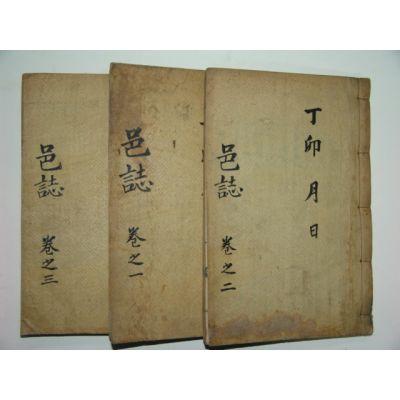 丁卯 月 日
邑誌 卷之二
邑誌 卷之一
邑誌 卷之三